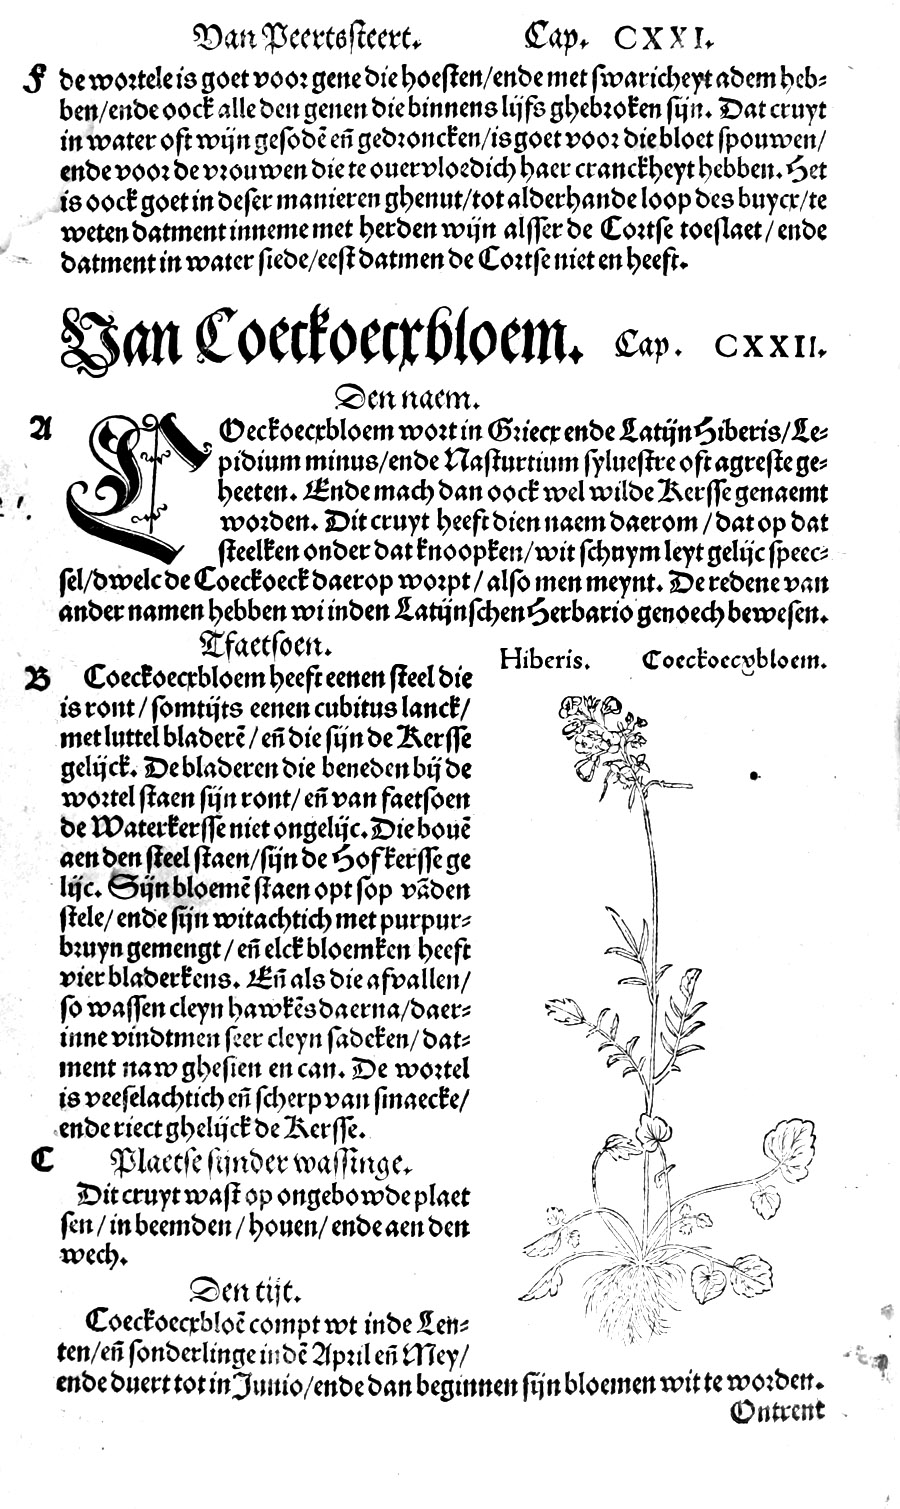 Van Peertssteert. Cap. CXXI.
F de wortele is goet voor gene die hoesten/ende met swaricheyt adem heb⸗
ben/ende oock alle den genen die binnens lijfs ghebroken sijn. Dat cruyt
in water oft wijn gesodē eñ gedroncken/is goet voor die bloet spouwen/
ende voor de vrouwen die te ouervloedich haer cranckheyt hebben. Het
is oock goet in deser manieren ghenut/tot alderhande loop des buycx/te
weten datment inneme met herden wijn alsser de Cortse toeslaet/ende
datment in water siede/eest datmen de Cortse niet en heeft.
Van Coeckoecxbloem. Cap. CXXII.
Den naem.
A COeckoecxbloem wort in Griecx ende Latijn Hiberis/Le⸗
pidium minus/ende Nasturtium syluestre oft agreste ge⸗
heeten. Ende mach dan oock wel wilde Kersse genaemt
worden. Dit cruyt heeft dien naem daerom/dat op dat
steelken onder dat knoopken/wit schuym leyt gelijc speec⸗
sel/dwelc de Coeckoeck daerop worpt/also men meynt. De redene van
ander namen hebben wi inden Latijnschen Herbario genoech bewesen.
Tfaetsoen.
B Coeckoecxbloem heeft eenen steel die
is ront/somtijts eenen cubitus lanck/
met luttel bladerē/eñ die sijn de Kersse
gelijck. De bladeren die beneden bij de
wortel staen sijn ront/eñ van faetsoen
de Waterkersse niet ongelijc. Die bouē
aen den steel staen/sijn de Hofkersse ge
lijc. Sijn bloemē staen opt sop vāden
stele/ende sijn witachtich met purpur⸗
bruyn gemengt/eñ elck bloemken heeft
vier bladerkens. Eñ als die afvallen/
so wassen cleyn hawkēs daerna/daer⸗
inne vindtmen seer cleyn sadeken/dat⸗
ment naw ghesien en can. De wortel
is veeselachtich eñ scherp van smaecke/
ende riect ghelijck de Kersse.
C Plaetse sijnder wassinge.
Dit cruyt wast op ongebowde plaet
sen/in beemden/houen/ende aen den
wech.
Den tijt.
Coeckoecxbloē compt wt inde Len⸗
ten/eñ sonderlinge indē April eñ Mey/
ende duert tot in Junio/ende dan beginnen sijn bloemen wit te worden.
Hiberis. Coeckoecxbloem.
Ontrent